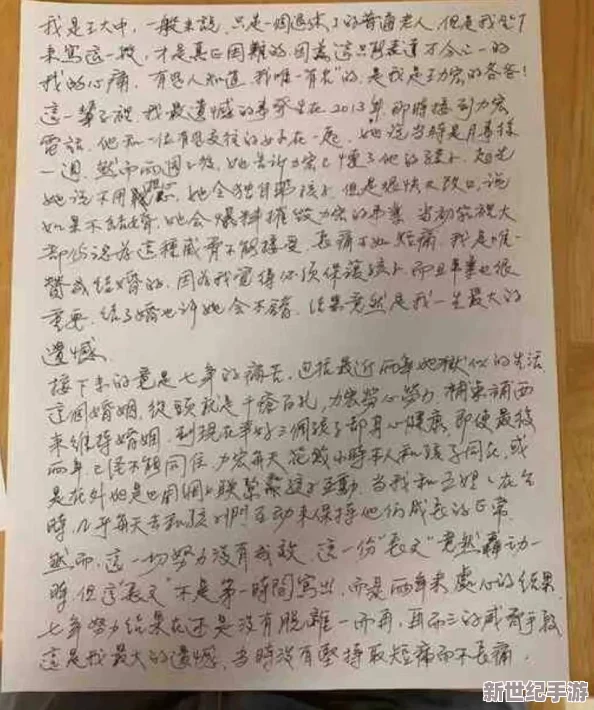 我是王大中，一般來說，只是一個退休了的普通老人，但是我坐下
來寫這一般，才是真正困難的，因為這
我的心痛。有些人知道，我唯一有名的，是我是王力宏的爸爸！
這一輩子裡，我最遺憾的事發生在2013年，那時接到力宏
電話，他和一位有過交往的女子在一起，她說當時是月事後
一週，然而兩週後，她告訴力宏已懷了他的孩子，起先
她說不用擔心，她会獨自養孩子，但是很快又改口，說
如果不結婚，她会爆料摧毀力宏的事業，當初家裡大
部份認為這種威脅不能接受，長痛不如短痛，我是唯一
贊成結婚的，因為我覺得必須保護孩子，而且事業也很
重要，結了婚也許她会不錯，结果竟然是我一生最大的
遺憾。
接下來的竟是七年的痛苦，包括最近兩年地獄似的生活
這個婚姻，從頭就是千瘡百孔，力宏勞心勞力，補東補西
來維持婚姻，到現在幸好三個孩子都身心健康，即使最後
兩年，已經不能同住，力宏每天花幾小時本人和孩子同在，或
是在外地也用網上联繫需孩子互動，當我和在台
時，几乎每天去和孩子們互動來保持他們成長的正常
然而，這一切努力沒有成效，這一份“長文”竟然轟动一
時，但這“長文”不是第一時間寫出，而是兩年來處心的结果，
七年努力结果在还是沒有脫離一而再，再而三的威脅手段
這是我最大的遺憾，當時沒有堅持取短痛而不長痛．
新世纪手游